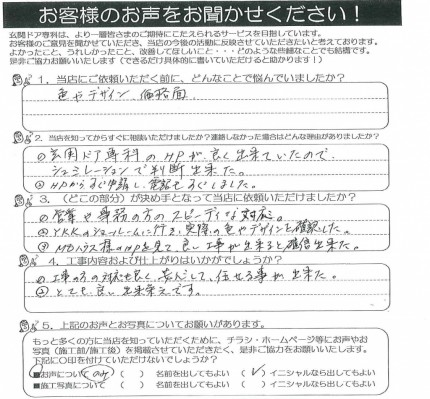 お客様のお声をお聞かせください！
玄関ドア専科は、より一層皆さまのご期待にこたえられるサービスを目指しています。
お客様のご意見を聞かせていただき、当店の今後の活動に反映させていただきたいと考えております。
よかったこと、うれしかったこと、改善してほしいこと・・・どのような些細なことでも結構です。
是非ご協力お願いいたします（できるだけ具体的に書いていただけると助かります！）
１．当店にご依頼いただく前に、どんなことで悩んでいましたか？
色やデザイン、価格面
２．当店を知ってからすぐに相談いただけましたか？連絡しなかった場合はどんな理由がありましたか？
① 玄関ドア専科のHPが良く出来ていたので、
シュミレーションで判断出来た。
② HPからすぐ申請し、電話もすぐしました。
３．（どこの部分）が決め手となって当店に依頼いただけましたか？
① 営業や専務の方のスピーディな対応。
② YKKのショールームに行き、実際の色やデザインを確認した。
③ HPの 様のHPを見て、良い工事が出来ると確信出来た。
４．工事内容および仕上がりはいかがでしょうか？
① 工事の方の対応も良く、安心して、任せる事が出来た。
② とても良い出来栄えです。
５．上記のお声とお写真についてお願いがあります。
もっと多くの方に当店を知っていただくために、チラシ・ホームページ等にお声やお
写真（施工前/施工後）を掲載させていただきたく、是非ご協力をお願いいたします。
下記に○印を付けていただけないでしょうか？
■お声についてのみ（ ）名前を出してもよい（✓）イニシャルなら出してもよい
■施工写真について（ ）名前を出してもよい（ ）イニシャルなら出してもよい